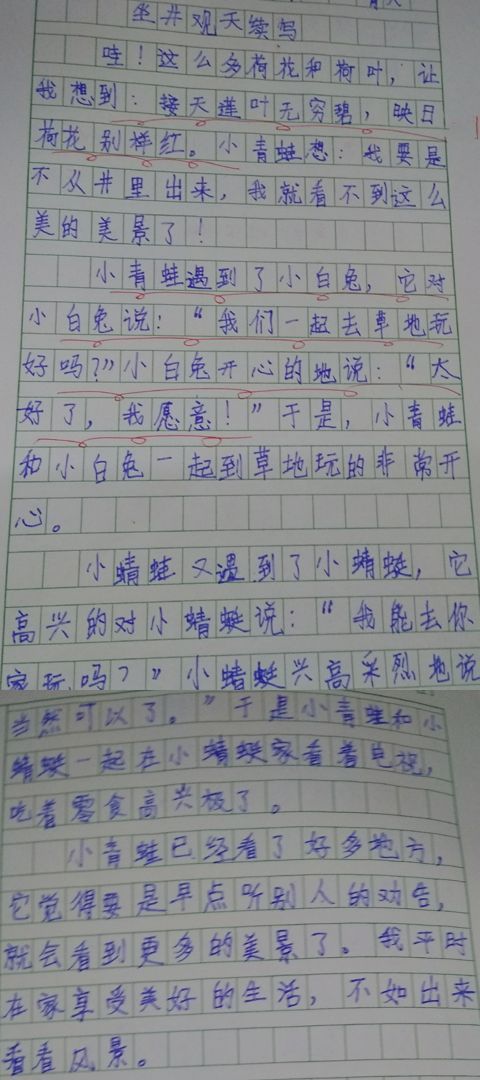 坐井观天续写
哇！这么多荷花和荷叶，让
我想到：接天莲叶无穷碧，映日
荷花别样红。小青蛙想：我要是
不从井里出来，我就看不到这么
美的美景了！
小青蛙遇到了小白兔，它对
小白兔说：“我们一起去草地玩
好吗？”小白兔开心的地说：“太
好了，我愿意！”于是，小青蛙
和小白兔一起到草地玩的非常开
心。
小蜻蛙又遇到了小蜻蜓，它
高兴的对小蜻蜓说：“我能去你
家玩吗？”小蜻蜓兴高采烈地说
当然可以了。”于是小青蛙和小
蜻蜓一起在小蜻蜓家看着电视，
吃着零食高兴极了。
小青蛙已经看了好多地方，
它觉得要是早点听别人的劝告，
就会看到更多的美景了。我平时
在家享受美好的生活，不如出来
看看风景。